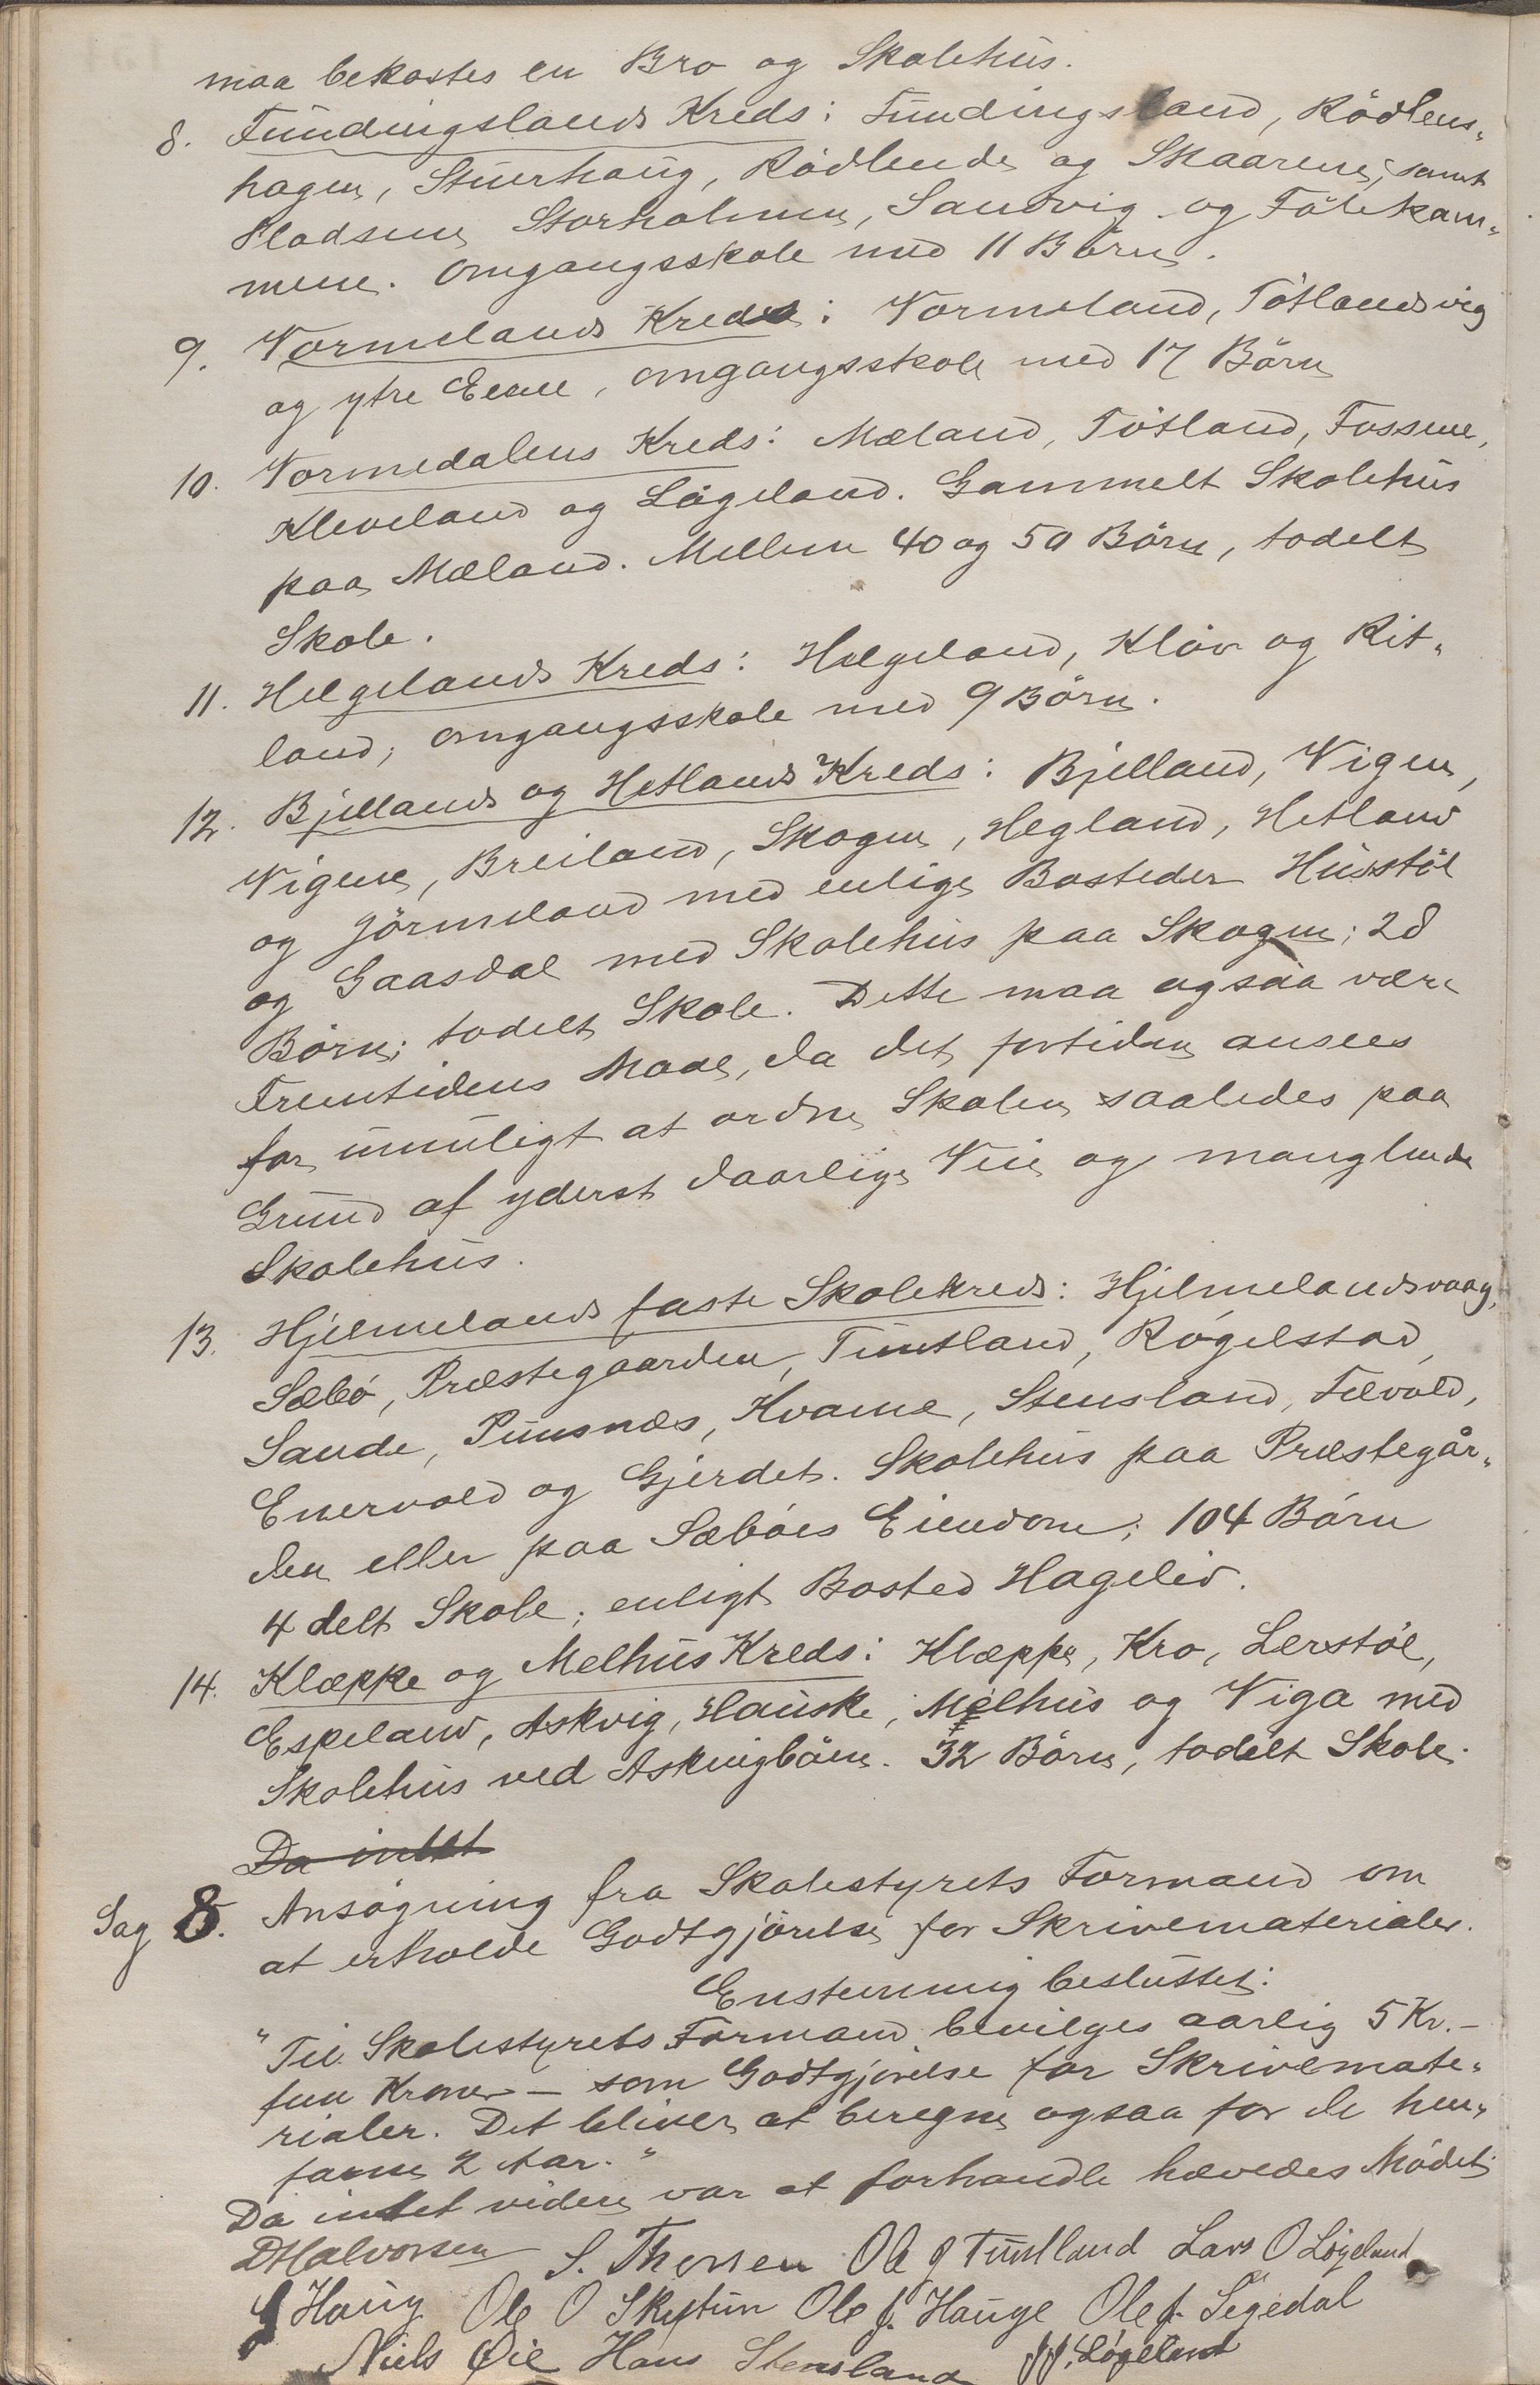 maa bekostes en Bro og Skolehus.
8. Fundingslands Kreds: Fundingsland, Rødlens-
hagen, Stuerhaug, Rødlende og Skaarene, samt
Pladsene Storholmen, Sandvig og Fölekam-
mene. Omgangsskole med 11 Börn.
9. Vormelands Kreds: Vormeland, Tötlandsvig
og ytre Eiane, Omgangsskole med 17 Börn
10. Vormedalens Kreds: Mæland, Tötland, Fossene,
Kleveland og Lögeland. Gammelt Skolehus
paa Mæland. Mellem 40 og 50 Börn, todelt
Skole.
11. Helgelands Kreds: Helgeland, Klöv og Rit-
land; Omgangsskole med 9 Börn.
12. Bjellands og Hetlands Kreds: Bjelland, Vigen,
Vigene, Breiland, Skogen, Hegland, Hetland
og Jörmeland med enlige Bosteder Husstöl
og Gaasdal med Skolehus paa Skogen; 28
Börn; todelt Skole. Dette maa ogsaa være
Fremtidens Maal, da det fortiden ansees
for umuligt at ordne Skolen saaledes paa
Grund af yderst daarlige Veie og manglende
Skolehus.
13. Hjelmelands faste Skolekreds: Hjelmelandsvaag,
Sæbö, Præstegaarden, Tuntland, Rögelstad,
Sande, Pundsnæs, Kvame, Stensland, Tævold,
Enervold og Gjerdet. Skolehus paa Præstegår-
den eller paa Sæbøes Eiendom; 104 Börn
4 delt Skole; enligt Bosted Hagelid.
14. Kleppe og Melhus Kreds: Kleppe, Kro, Lerstöl,
Espeland, Askvig, Hauske, Melhus og Viga med
Skolehus ved Askvigböen. 32 Börn, todelt Skole.
Da intet
Sag 8. Ansøgning fra Skolestyrets Formand om
at erholde Godtgjörelse for Skrivematerialer.
Enstemmig besluttet:
"Til Skolestyrets Formand bevilges aarlig 5 Kr. –
fem Kroner – som Godtgjörelse for Skrivemate-
rialer. Det bliver at beregne ogsaa for de hen-
farne 2 Aar."
Da intet videre var at forhandle hævedes Mödet.
D Halvorsen S. Thorsen Ole J Tuntland Lars O Løgeland
J Haug Ole O Skiftun Ole J. Hauge Ole J. Segedal
Niels Øie Hans Stensland J. J. Løgeland